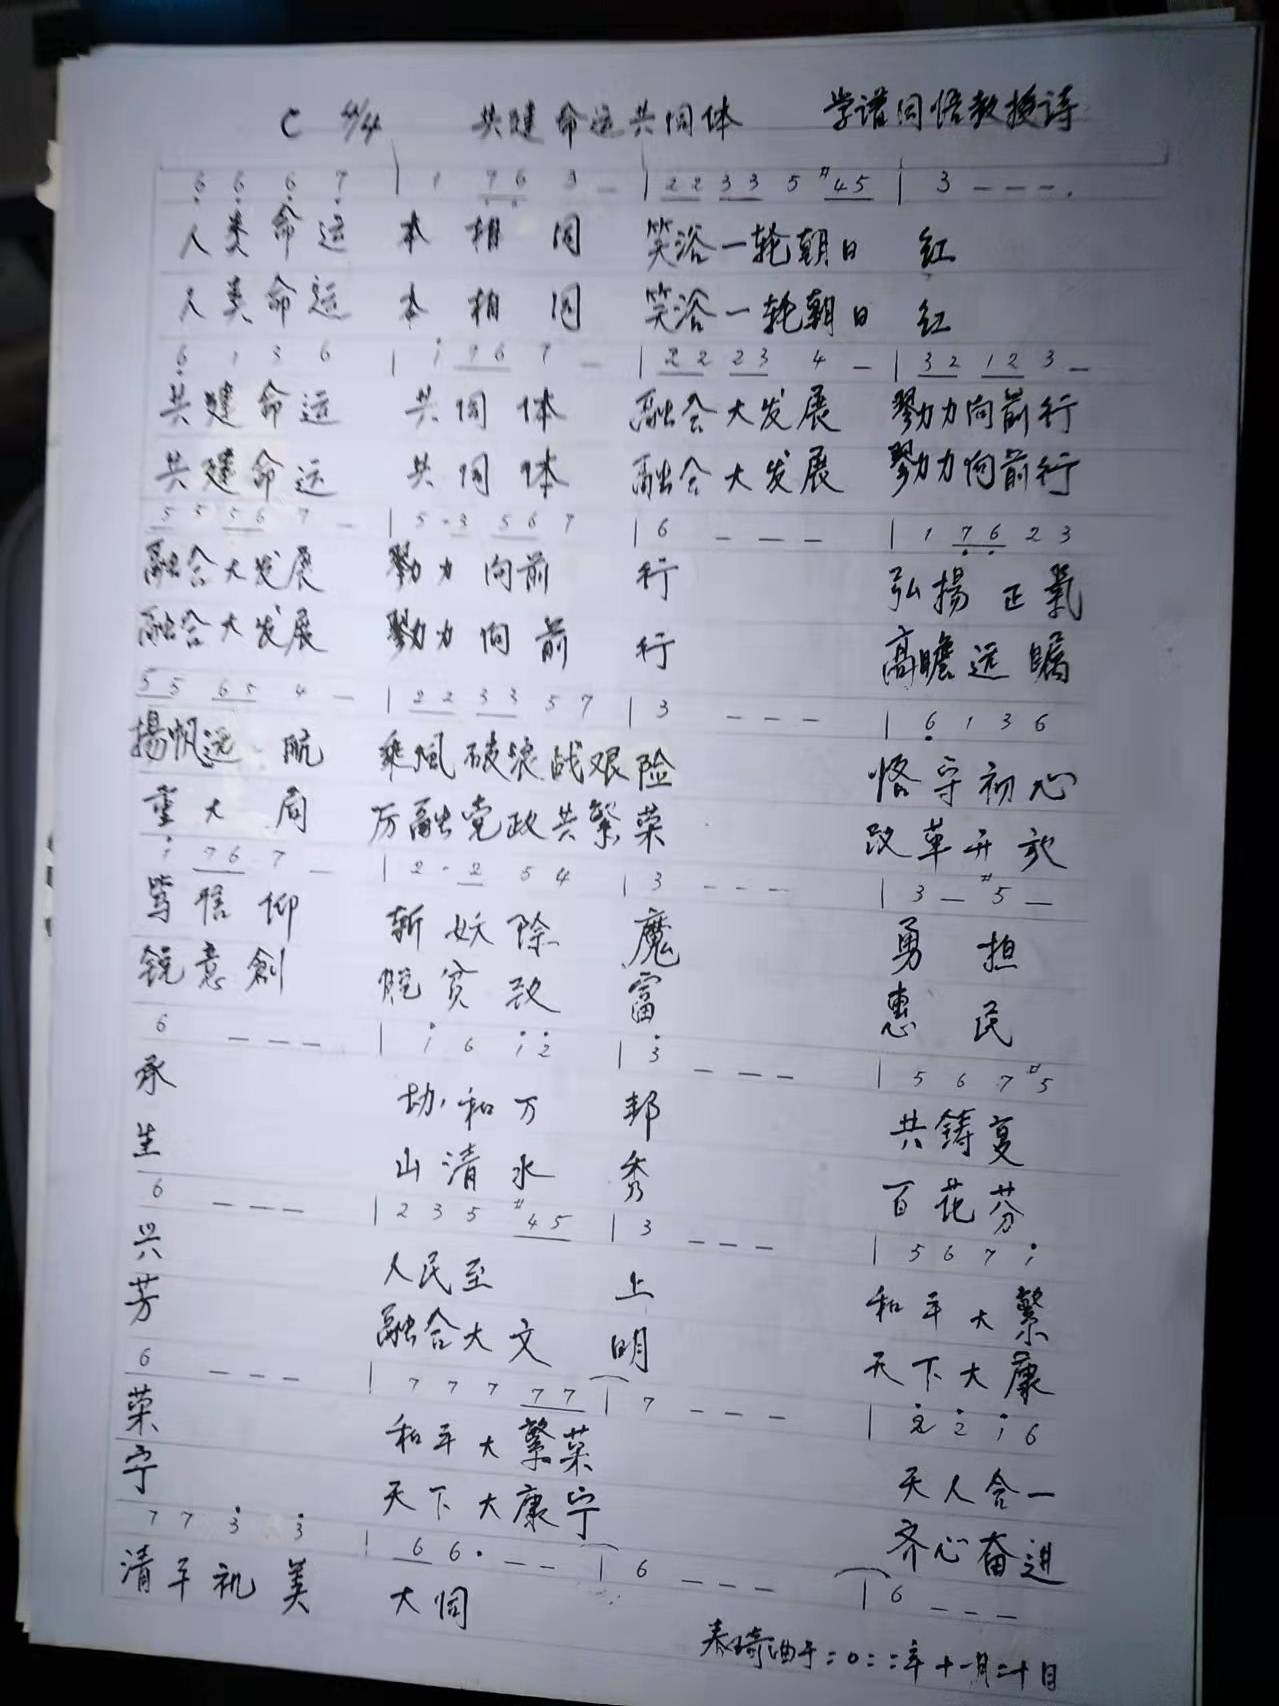 C 4/4 共建命运共同体 学谱同悟教授诗
6 6 6 7 | 1 7 6 3 – | 2 2 3 3 5 #4 5 | 3 – – –
人类命运 本相同 笑浴一轮朝日 红
人类命运 本相同 笑浴一轮朝日 红
6 1 3 6 | 1 7 6 7 – | 2 2 2 3 4 – | 3 2 1 2 3 –
共建命运 共同体 融合大发展 勠力向前行
共建命运 共同体 融合大发展 勠力向前行
5 5 5 6 7 – | 5 · 3 5 6 7 | 6 – – – | 1 7 6 2 3
融合大发展 勠力向前 行 弘揚正氣
融合大发展 勠力向前 行 高瞻远瞩
5 5 6 5 4 – | 2 2 3 3 5 7 | 3 – – – | 6 1 3 6
揚帆远航 乘風破浪战艰险 恪守初心
重大局 厉融党政共繁荣 改革开放
1 7 6 7 – | 2 · 2 5 4 | 3 – – – | 3 – #5 –
笃信仰 斩妖除 魔 勇担
锐意創 脱贫致 富 惠民
6 – – – | 1 6 1 2 | 3 – – – | 5 6 7 #5
承 协和万 邦 共铸复
生 山清水 秀 百花芬
6 – – – | 2 3 5 #4 5 | 3 – – – | 5 6 7 1
兴 人民至 上 和平大繁
芳 融合大文 明 天下大康
6 – – – | 7 7 7 7 7 | 7 – – – | 2 2 1 6
荣 和平大繁荣 天人合一
宁 天下大康宁 齐心奋进
7 7 3 3 | 6 6 · – – | 6 – – – | 6 – – –
清平礼美 大同
秦琦曲于二〇二二年十一月二十日